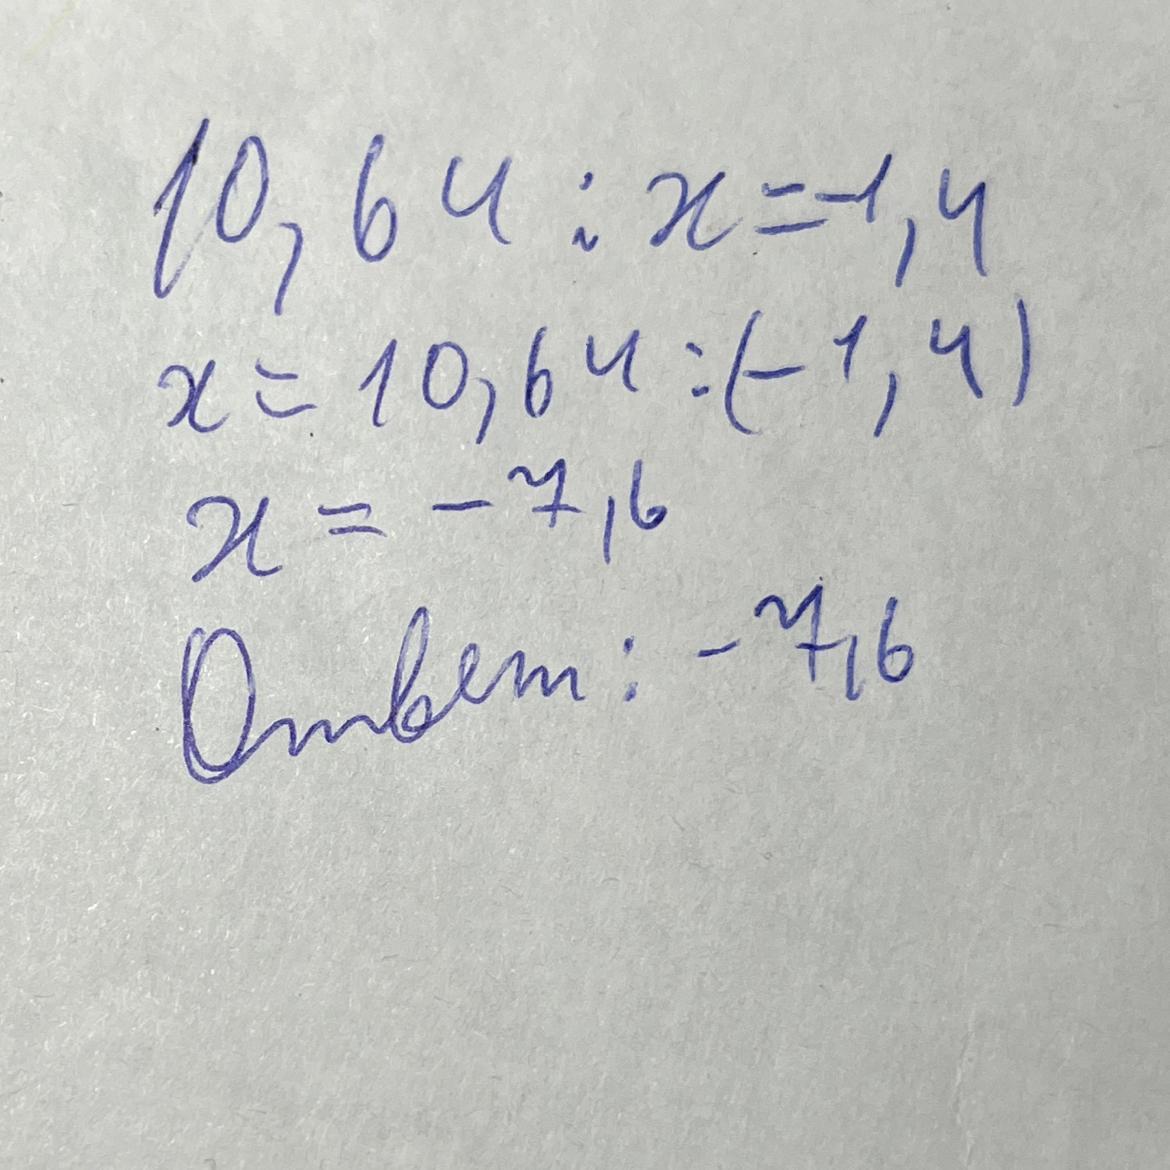 10,64 : x = -1,4
x = 10,64 : (-1,4)
x = -7,6
Ответ: -7,6